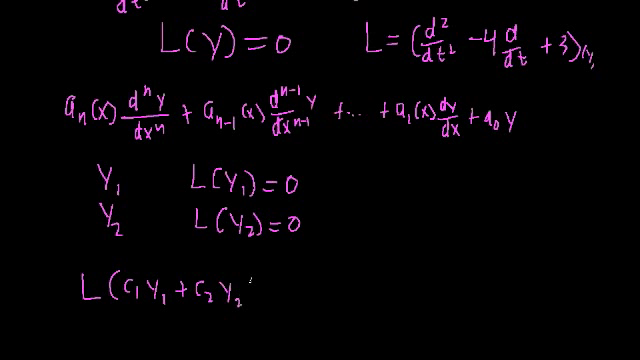 dt dt
L(y)=0 L=(d²/dt² -4 d/dt +3)(y)
aₙ(x) dⁿy/dxⁿ + aₙ₋₁(x) dⁿ⁻¹y/dxⁿ⁻¹ +... + a₁(x) dy/dx + a₀ y
y₁ L(y₁)=0
y₂ L(y₂)=0
L(c₁y₁+c₂y₂